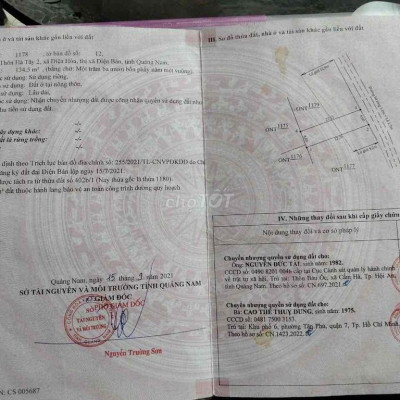 ở và tài sản khác gắn liền với đất
1178 , tờ bản đồ số: 12,
Thôn Hà Tây 2, xã Điện Hòa, thị xã Điện Bàn, tỉnh Quảng Nam,
134,5 m², (bằng chữ: Một trăm ba mươi bốn phẩy năm mét vuông),
sử dụng: Sử dụng riêng,
sử dụng: Đất ở tại nông thôn,
sử dụng: Lâu dài,
sử dụng: Nhận chuyển nhượng đất được công nhận quyền sử dụng đất
thu tiền sử dụng đất.
-/-
xây dựng khác: -/-
là rừng trồng: -/-
-/-
định theo Trích lục bản đồ địa chính số: 255/2021/TL-CNVPĐKĐĐ do
đăng ký đất đai Điện Bàn lập ngày 15/7/2021.
được tách ra từ thửa đất số 402b/1 (Nay thửa gốc là thửa 1180).
đất thuộc hành lang bảo vệ an toàn công trình đường quy hoạch.
Quảng Nam, ngày 15 tháng 9 năm 2021
SỞ TÀI NGUYÊN VÀ MÔI TRƯỜNG TỈNH QUẢNG NAM
GIÁM ĐỐC
PHÓ GIÁM ĐỐC
SỞ
TÀI NGUYÊN
VÀ MÔI TRƯỜNG
Nguyễn Trường Sơn
N: CS 005687
III. Sơ đồ thửa đất, nhà ở và tài sản khác gắn liền với đất
1179
ONT
ONT
ONT
1177
ONT 1176
chợTỐT
IV. Những thay đổi sau khi cấp giấy chứng
Nội dung thay đổi và cơ sở pháp lý
Chuyển nhượng quyền sử dụng đất cho:
Ông: NGUYỄN ĐỨC TÀI, sinh năm: 1982,
CCCD số: 0490 8201 0046 cấp tại Cục Cảnh sát quản lý hành chính
về trật tự xã hội. Trú tại: Thôn Bàu Ốc, xã Cẩm Hà, Tp. Hội An,
tỉnh Quảng Nam. Theo hồ sơ số: CN.697.2021.
Chuyển nhượng quyền sử dụng đất cho:
Bà: CAO THÊ THUỲ DUNG, sinh năm: 1975,
CCCD số: 0481 7500 3157.
Trú tại: Khu phố 6, phường Tân Phú, quận 7, Tp. Hồ Chí Minh.
Theo hồ sơ số: CN.1423.2022.